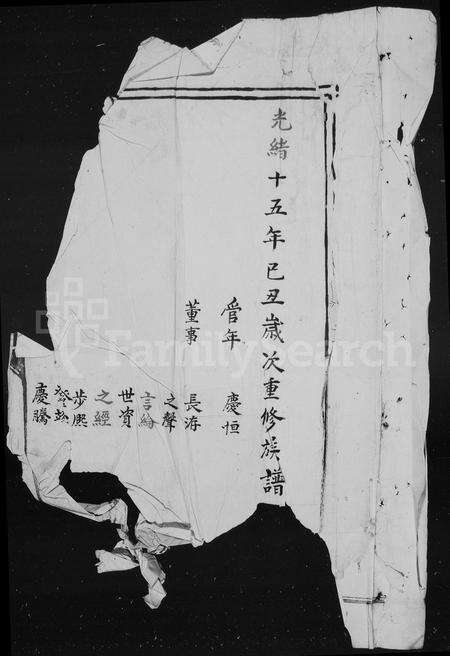 光緒十五年己丑歲次重修族譜
管年 慶恒
董事 長洊
之聲
言綸
世資
之經
步熙
慶騰
FamilySearch